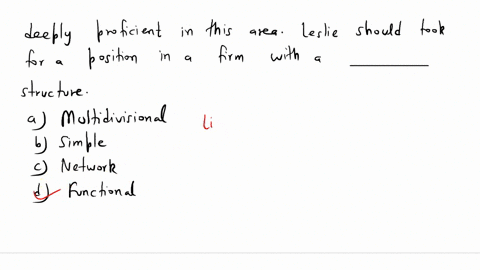 deeply proficient in this area. Leslie should took
for a position in a firm with a ________
structure.
a) Multidivisional
Li
b) Simple
c) Network
d) Functional